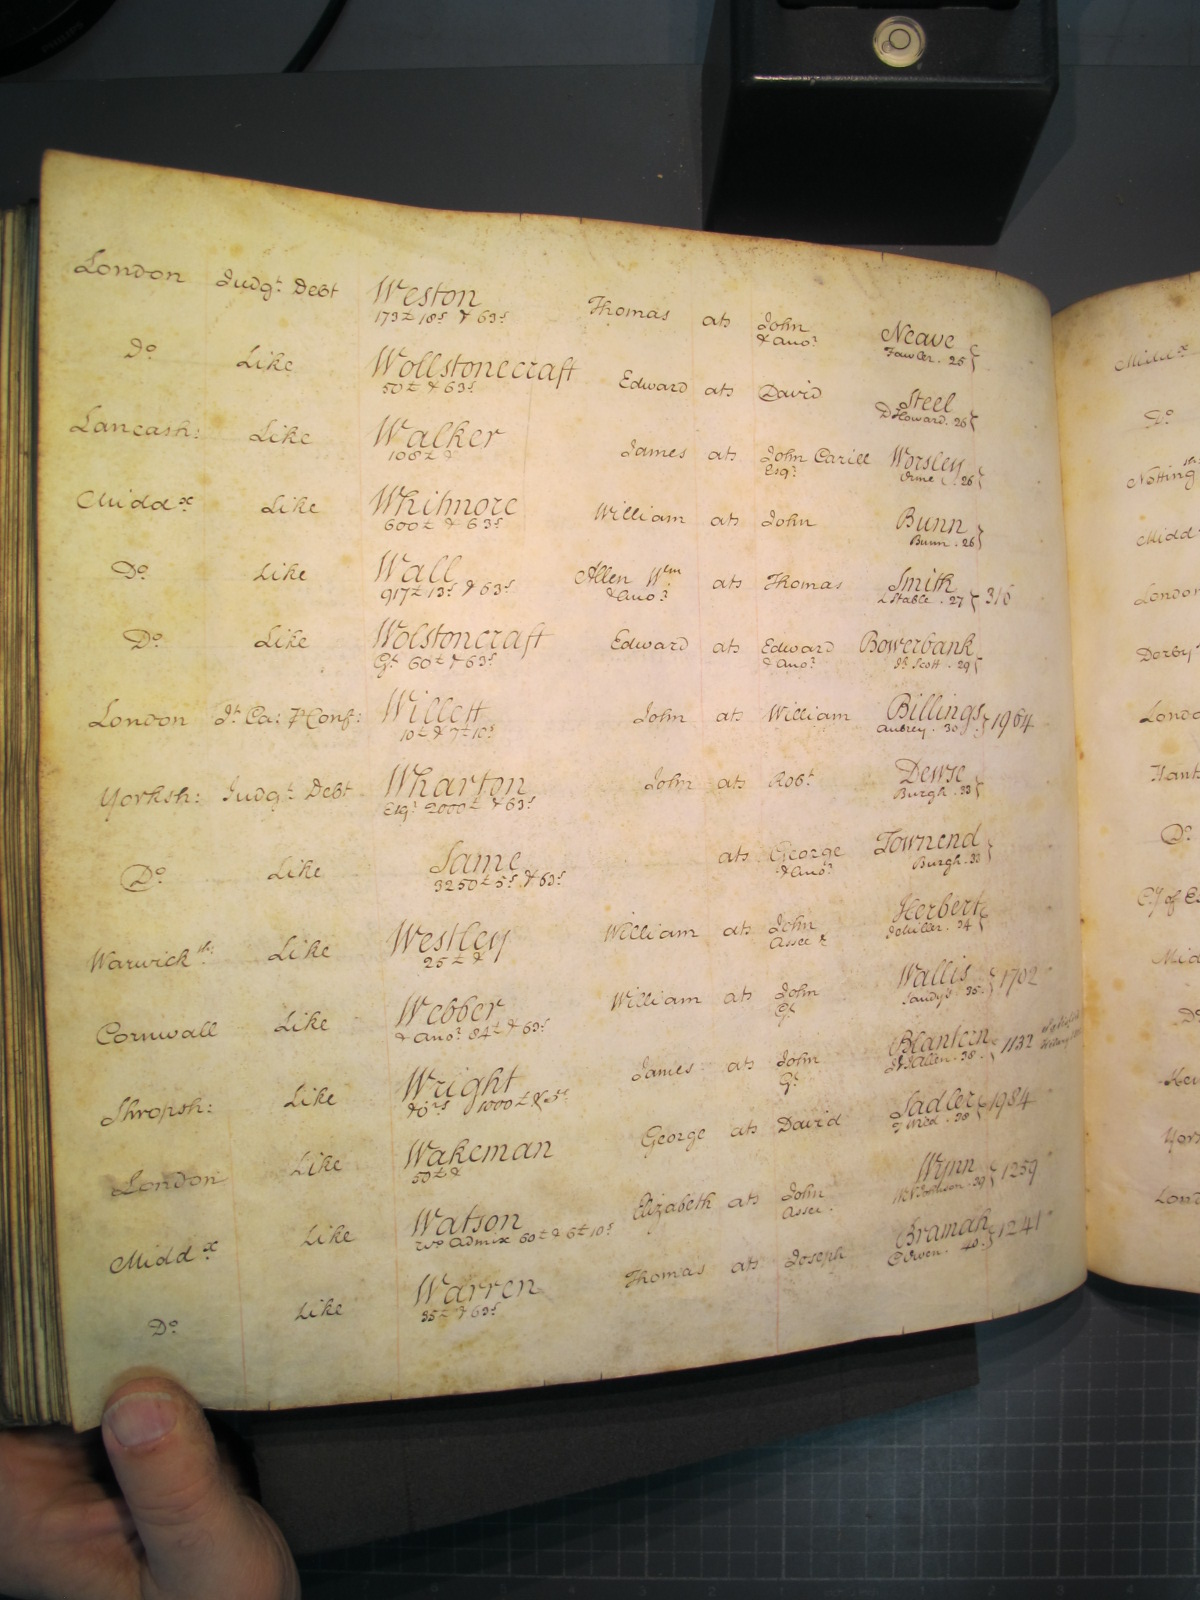 London Judgt. Debt Weston Thomas ats John Neave
173£ 18s & 63s & Anor. Fowler. 25
Do. Like Wollstonecraft Edward ats David Steel
50£ & 63s D Howard. 26
Lancash: Like Walker James ats John Carill Worsley
106£ & Esqr. Orme. 26
Middx Like Whitmore William ats John Bunn
600£ & 63s Bunn. 26
Do. Like Wall Allen Wm ats Thomas Smith
917£ 13s & 63s & Anor. LStable. 27 316
Do. Like Wolstoncraft Edward ats Edward Bowerbank
Gt. 60£ & 63s & Anor. Js. Scott. 29
London Jt. Ca: P Conf: Willett John ats William Billings
10£ & 7£ 10s Aubrey. 30 1964
Yorksh: Judgt. Debt Wharton John ats Robt. Dewse
Esqr. 2000£ & 63s Burgh. 33
Do. Like Same ats George Townend
3250£ 5s & 63s & Anor. Burgh. 33
Warwicksh: Like Westley William ats John Herbert
25£ & Assee &. 34
Cornwall Like Webber William ats John Wallis
& Anor. 84£ & 63s Gt. Sandys. 35 1702
Shropsh: Like Wright James ats John Blanteen
& ors 1000£ & 5s Gt. Allen. 38. 1132
London Like Wakeman George ats David Sadler
50£ & 38 1984
Middx Like Watson Elizabeth ats John Wynn
Wo. Admix 60£ & 6£ 10s Assee. 39 1259
Do. Like Warren Thomas ats Joseph Bramah
35£ & 63s 40. 1241
Middx
Do.
Notting sh:
Midd
London
Derby
Do.
Do